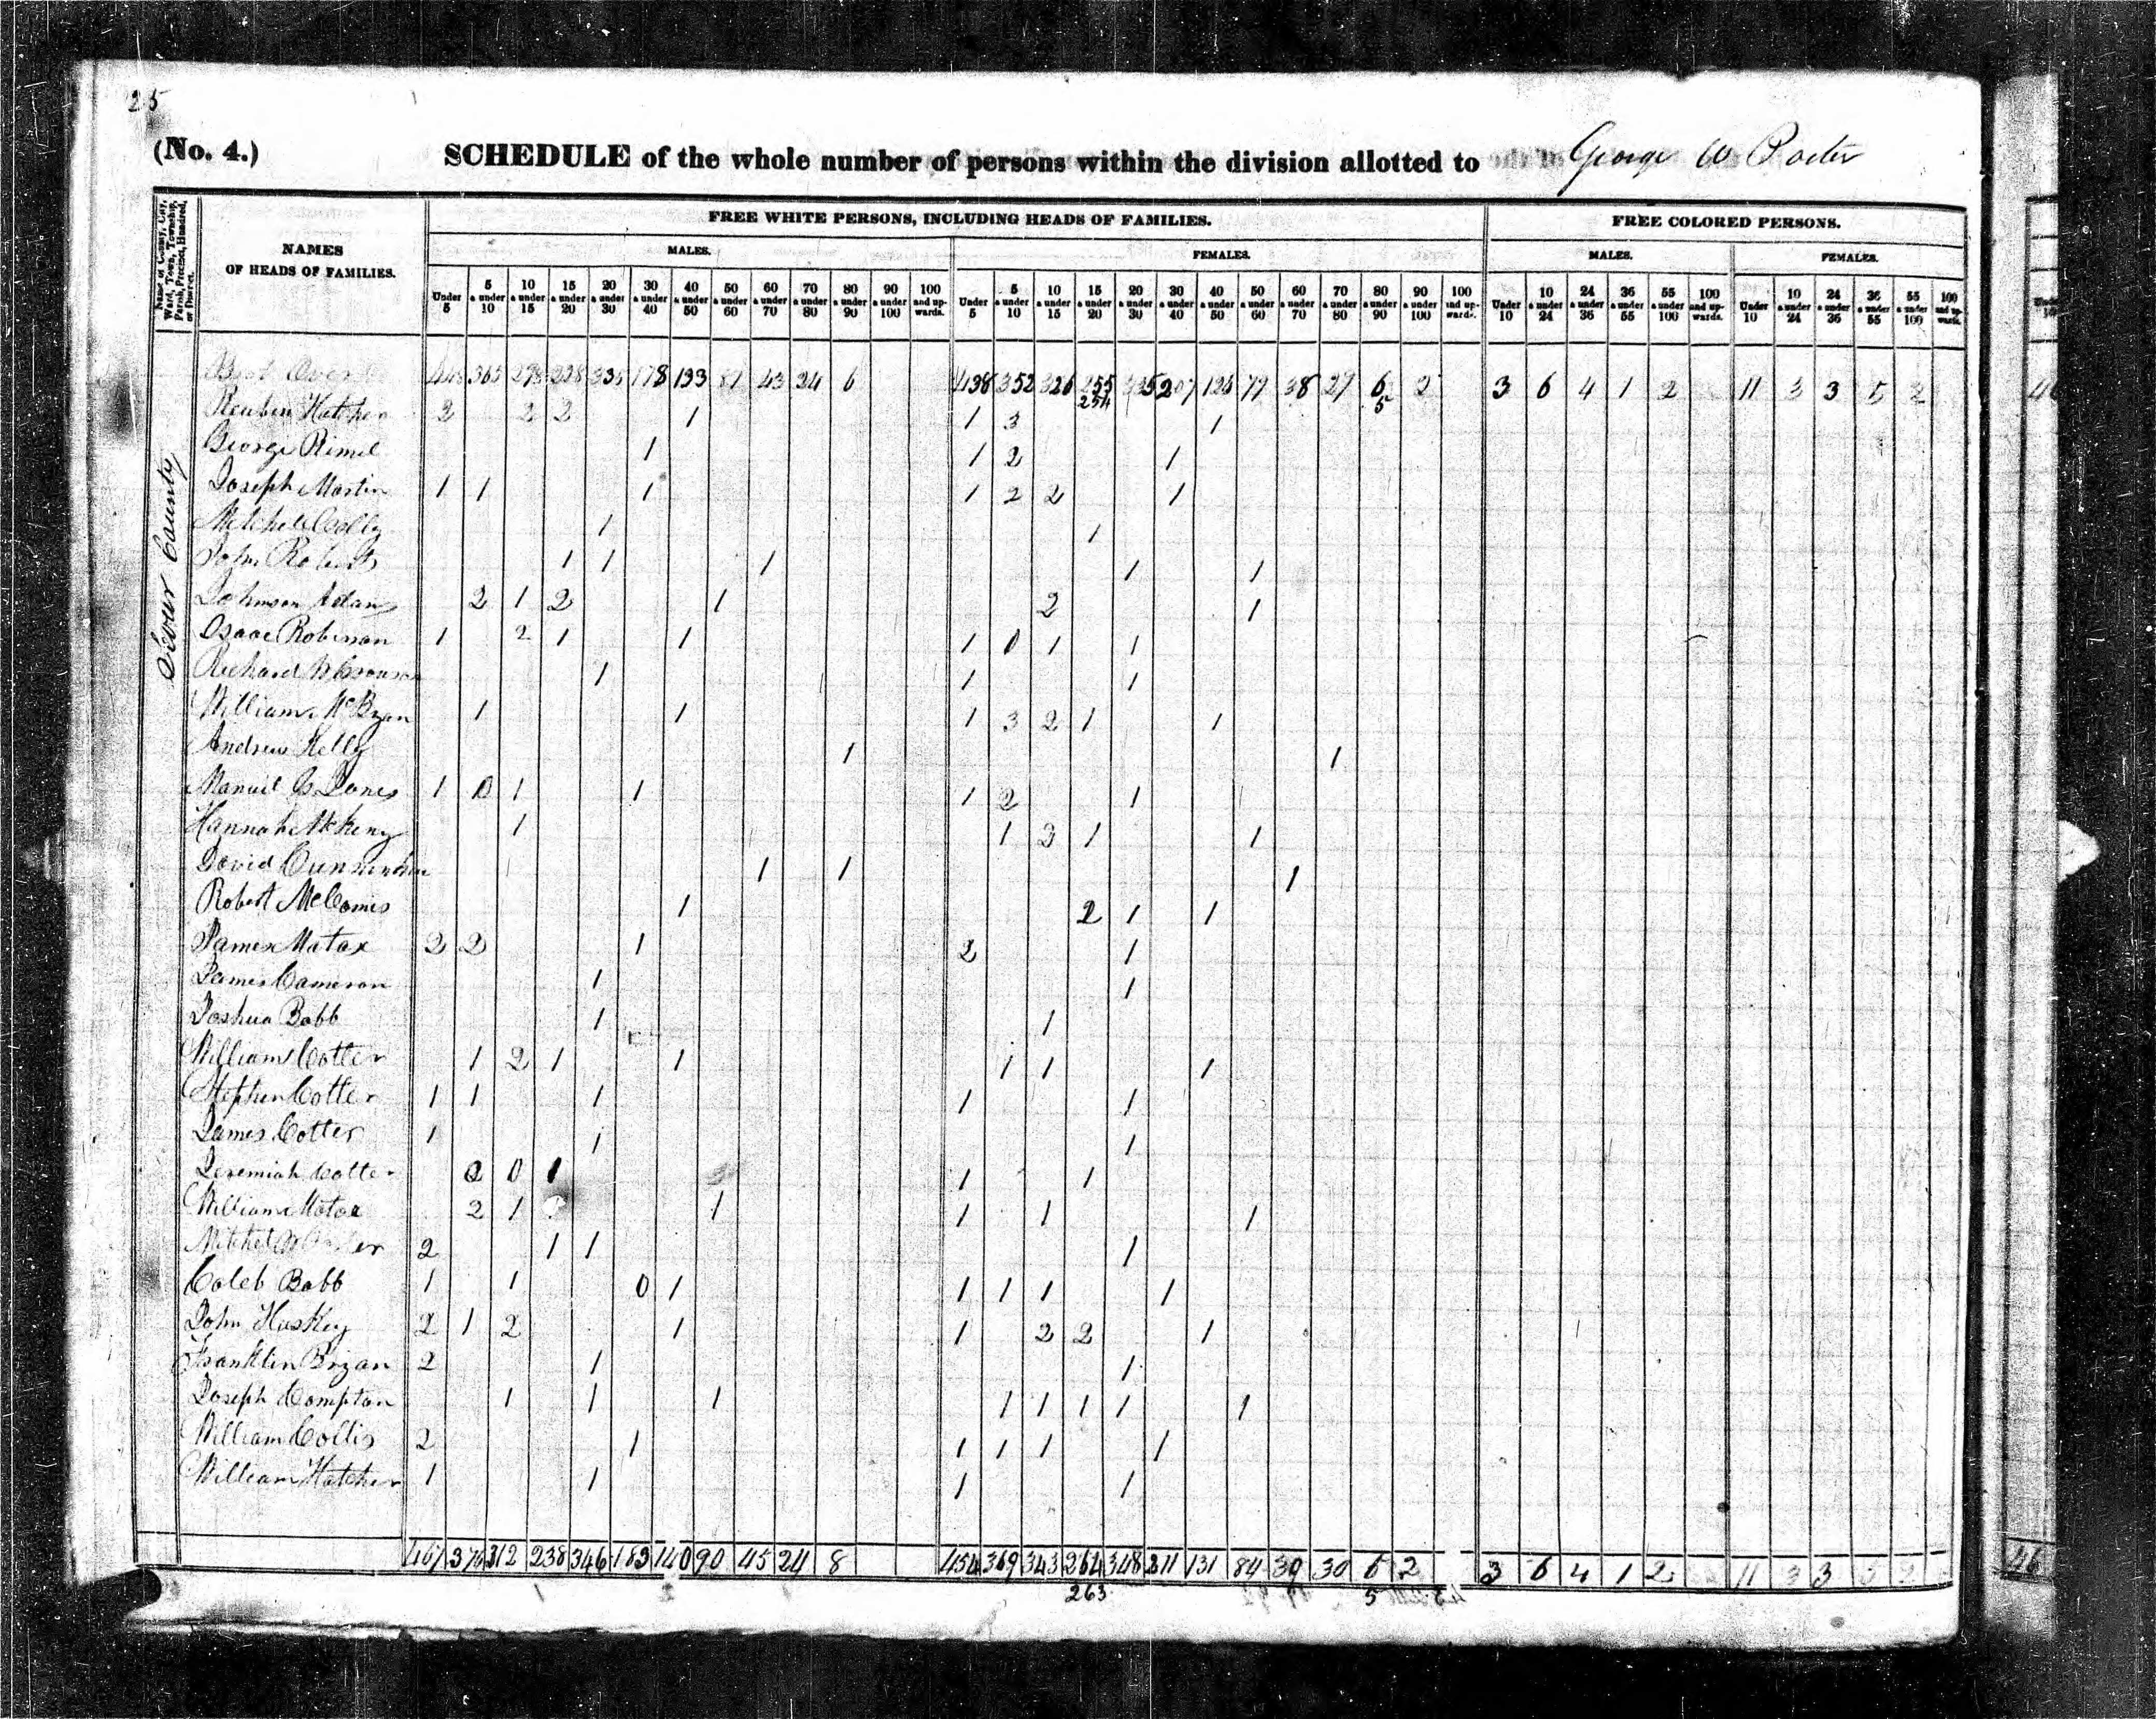 25
(No. 4.) SCHEDULE of the whole number of persons within the division allotted to George W Porter
Name of County, City, Ward, Town, Township, Parish, Precinct, Hundred, or District.
NAMES OF HEADS OF FAMILIES.
FREE WHITE PERSONS, INCLUDING HEADS OF FAMILIES.
FREE COLORED PERSONS.
MALES. FEMALES. MALES. FEMALES.
Under 5 | 5 & under 10 | 10 & under 15 | 15 & under 20 | 20 & under 30 | 30 & under 40 | 40 & under 50 | 50 & under 60 | 60 & under 70 | 70 & under 80 | 80 & under 90 | 90 & under 100 | 100 and upwards. | Under 5 | 5 & under 10 | 10 & under 15 | 15 & under 20 | 20 & under 30 | 30 & under 40 | 40 & under 50 | 50 & under 60 | 60 & under 70 | 70 & under 80 | 80 & under 90 | 90 & under 100 | 100 and upwards. | Under 10 | 10 & under 24 | 24 & under 36 | 36 & under 55 | 55 & under 100 | 100 and upwards. | Under 10 | 10 & under 24 | 24 & under 36 | 36 & under 55 | 55 & under 100 | 100 and upwards.
Sevier County
365 228 178 133 43 24 6 438 352 326 255 207 126 38 27 6 2 3 6 4 1 2 11 3 3 5 2
254 5
Reuben Hatcher 2 2 2 1 1 3 1
George Rimel 1 1 2 1
Joseph Martin 1 1 1 1 2 2 1
1 1
John Roberts 1 1 1 1 1
Johnson Adams 2 1 2 1 2 1
Isaac Robinson 1 2 1 1 1 0 1 1
Richard 1 1 1
William McBryan 1 1 1 3 2 1 1
Andrew Kelly 1 1
1 0 1 1 1 2 1
Hannah 1 1 2 1 1
David 1 1 1
Robert 1 2 1 1
James Matax 2 2 1 2 1
James Cameron 1 1
Joshua Babb 1 1
William Cotter 1 2 1 1 1 1 1
Stephen Cotter 1 1 1 1 1
James Cotter 1 1 1
Jeremiah Cotter 2 0 1 1 1
William Matax 2 1 1 1 1 1
Mitchel 2 1 1 1
Caleb Babb 1 1 0 1 1 1 1 1
John Huskey 2 1 2 1 1 2 2 1
Franklin Bryan 2 1 1
Joseph Compton 1 1 1 1 1 1 1 1
William Collis 2 1 1 1 1 1
William Hatcher 1 1 1 1
467 376 312 238 346 183 140 90 45 24 8 454 369 343 264 348 211 131 84 39 30 6 2 3 6 4 1 2 11 3 3 5 2
263 5